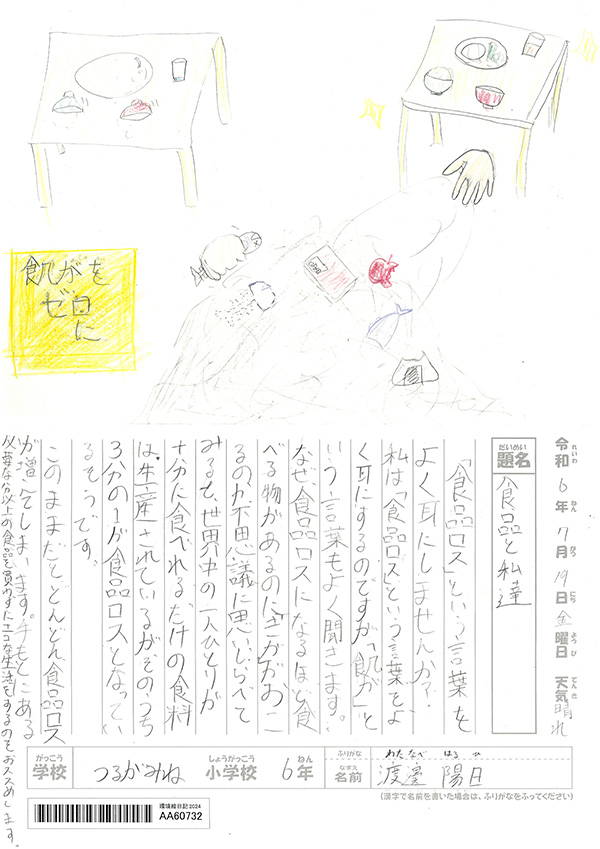 飢がを
ゼロ
に
令和6年7月19日金曜日 天気晴れ
れいわ ねん がつ にち ようび てんき
だいめい
題名
食品と私達
「食品ロス」という言葉を
よく耳にしませんか？
私は「食品ロス」という言葉をよ
く耳にするのですが「飢が」と
いう言葉もよく聞きます。
なぜ、食品ロスになるほど食
べる物があるのに「きが」がおこ
るのか不思議に思いしらべて
みると、世界中の一人ひとりが
十分に食べれるだけの食料
は生産されているがそのうち
3分の1が食品ロスとなってい
るそうです。
このままだとどんどん食品ロス
が増えてしまいます。手もとにある
必要な分以上の食品を買わずにエコな生活をするのをおススめします。
がっこう しょうがっこう ねん
学校 つるがみね 小学校 6年
ふりがな わたなべ はるひ
なまえ
名前 渡邉 陽日
(漢字で名前を書いた場合は、ふりがなをふってください)
環境絵日記2024
AA60732